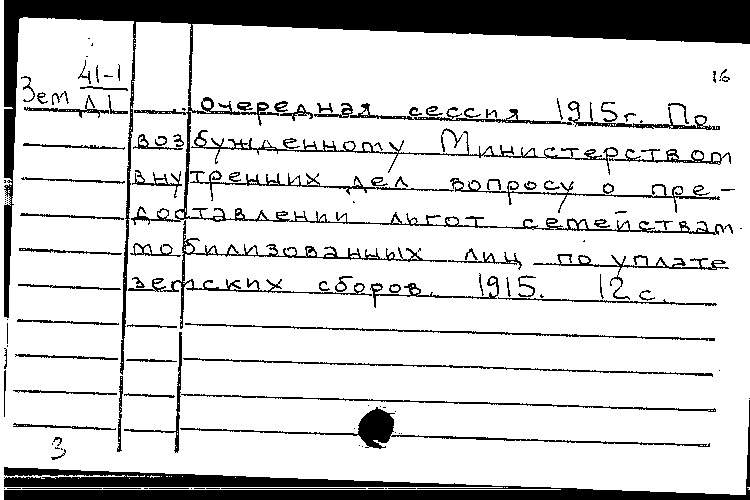 16
41-1
Зем Д1
...очередная сессия 1915г. По
возбужденному Министерством
внутренних дел вопросу о пре-
доставлении льгот семействам
мобилизованных лиц по уплате
земских сборов. 1915. 12с.
3